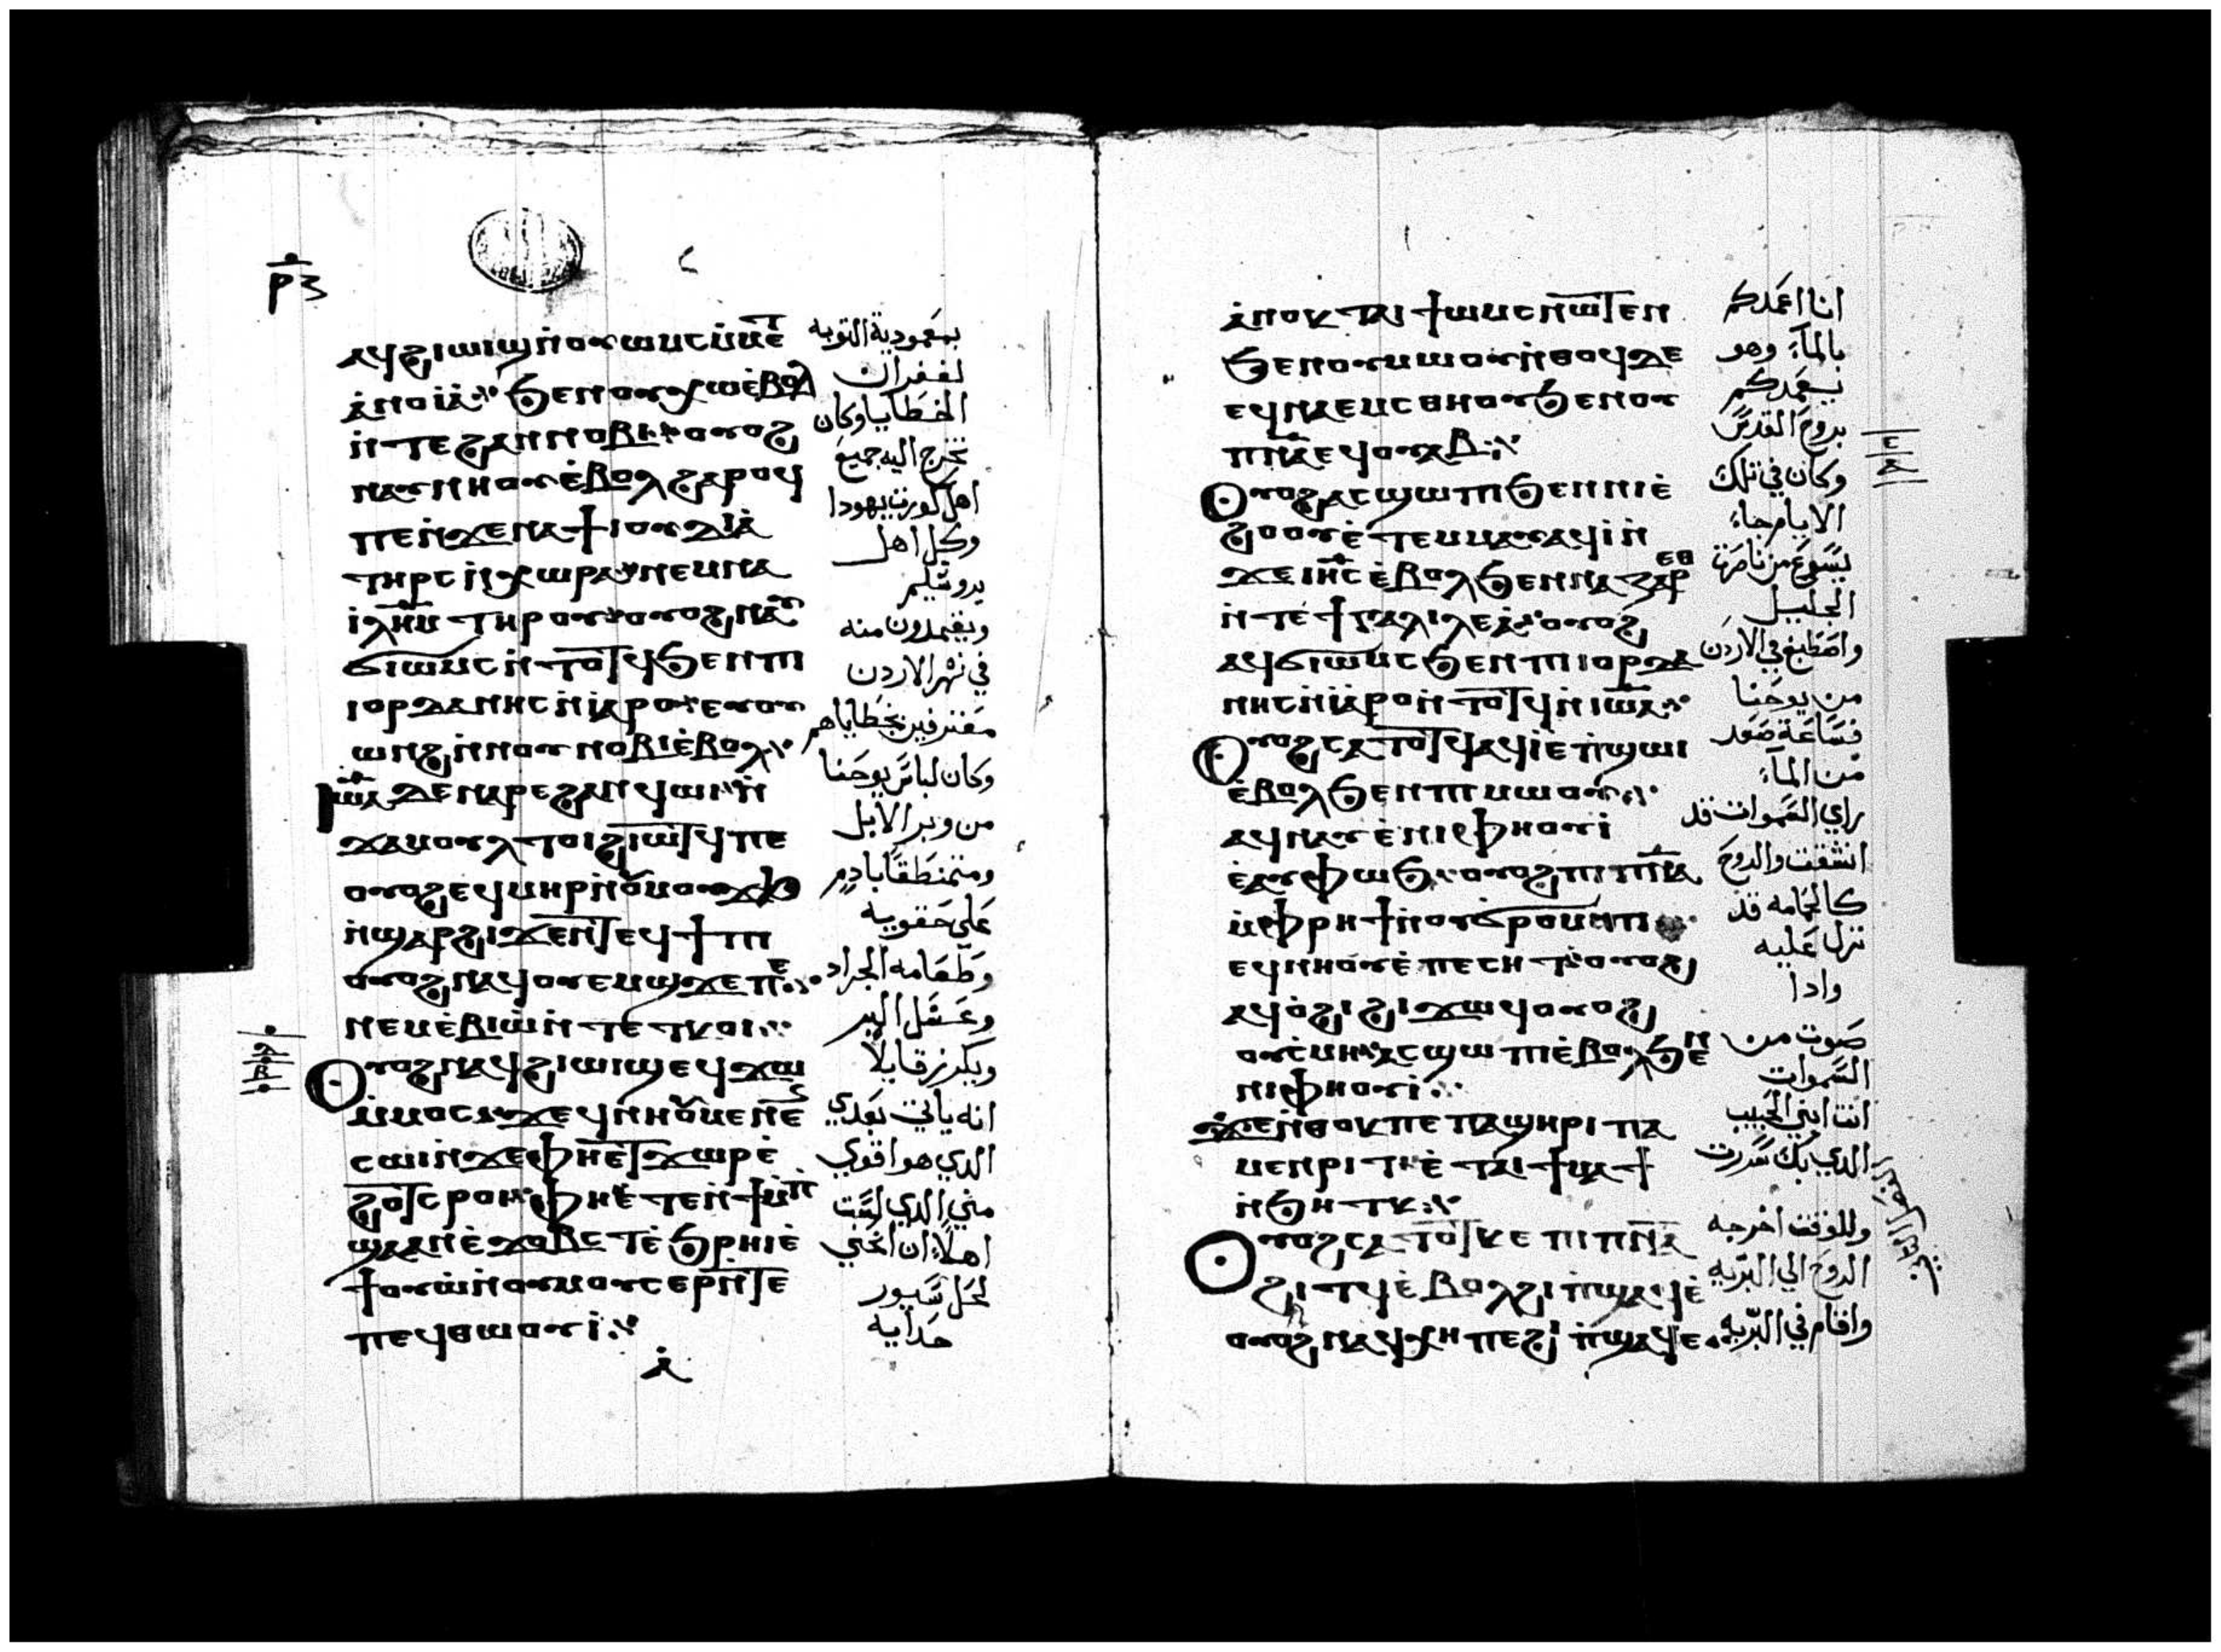 ⲣⲋ
ⲁϥϩⲓⲱⲓϣ ⲛ̇ⲟⲩⲱⲙⲥ ⲙ̇ⲙⲉⲧ
ⲁ̇ⲛⲟⲓⲁ̇ ϧⲉⲛⲟⲩⲭⲱ ⲉ̇ⲃⲟⲗ
ⲛ̇ⲧⲉϩⲁⲛⲛⲟⲃⲓ ⲟⲩⲟϩ
ⲛⲁⲩⲛⲏⲟⲩ ⲉ̇ⲃⲟⲗ ϩⲁⲣⲟϥ
ⲡⲉ ⲛ̇ϫⲉⲛⲁϯⲓⲟⲩⲇⲉⲁ̇
ⲧⲏⲣⲥ ⲛ̇ⲭⲱⲣⲁ ⲛⲉⲙⲛⲁ
ⲓ̇ⲗ̅ⲏ̅ⲙ̅ ⲧⲏⲣⲟⲩ ⲟⲩⲟϩ ⲛⲁⲩ
ϭⲓⲱⲙⲥ ⲛ̇ⲧⲟⲧϥ ϧⲉⲛⲡⲓ
ⲓⲟⲣⲇⲁⲛⲏⲥ ⲛ̇ⲓⲁⲣⲟ ⲉⲩⲟⲩ
ⲱⲛϩ ⲛ̇ⲛⲟⲩⲛⲟⲃⲓ ⲉ̇ⲃⲟⲗ
ⲓ̅ⲱ̅ⲁ̅ ⲇⲉ ⲛⲁⲣⲉϩⲁⲛϥⲱⲓ ⲛ̇
ϫⲁⲙⲟⲩⲗ ⲧⲟⲓ ϩⲓⲱⲧϥ ⲡⲉ
ⲟⲩⲟϩ ⲉϥⲙⲏⲣ ⲛ̇ⲟⲩⲙⲟⲩϫϧ
ⲛ̇ϣⲁⲣ ϩⲓϫⲉⲛⲧⲉϥϯⲡⲓ
ⲟⲩⲟϩ ⲛⲁϥⲟⲩⲉⲙϣϫⲉⲡⲉ
ⲛⲉⲙⲉ̇ⲃⲓⲱ̇ ⲛ̇ⲧⲉⲧⲕⲟⲓ
ⲟⲩⲟϩ ⲛⲁϥϩⲓⲱⲓϣ ⲉϥϫⲱ
ⲙ̇ⲙⲟⲥ ϫⲉϥⲛⲏⲟⲩ ⲙⲉⲛⲉⲛ
ⲥⲱⲓ ⲛ̇ϫⲉⲫⲏⲉⲧϫⲱⲣ ⲉ̇
ϩⲟⲧⲥⲣⲟⲓ ⲫⲏⲉ̇ⲧⲉⲛ̇ϯⲙ̇ⲡ
ϣⲁⲁⲛ ⲉ̇ϫⲟⲃⲥⲧ ⲉ̇ϧⲣⲏⲓ ⲉ̇
ϯⲟⲩⲱ̇ ⲛ̇ⲟⲩⲙⲟⲩⲥⲉⲣ ⲛ̇ⲧⲉ
ⲡⲉϥⲑⲱⲟⲩⲓ̇
ⲁ̇
بمعمودية التوبه
لغفران
الخطايا وكان
تخرج اليه جميع
اهل كورة يهودا
وكل اهل
يروشليم
ويعتمدون منه
في نهر الاردن
معترفين بخطاياهم
وكان لباس يوحنا
من وبر الابل
ومتمنطقا بادم
على حقويه
وطعامه الجراد
وعسل البر
ويكرز قايلا
انه ياتي بعدي
الدي هو اقوي
مني الدي لست
اهلا ان انحني
لاحل سيور
حدايه
ⲁ̇ⲛⲟⲕ ⲧⲁⲓϯⲱⲙⲥ ⲛ̇ⲱⲧⲉⲛ
ϧⲉⲛⲟⲩⲙⲱⲟⲩ ⲛ̇ⲑⲟϥ ⲇⲉ
ⲉϥⲛⲁⲉⲙⲥ ⲑⲏⲛⲟⲩ ϧⲉⲛⲟⲩ
ⲡ̅ⲛ̅ⲁ̅ ⲉϥⲟⲩⲁⲃ
ⲟⲩⲟϩ ⲁⲥϣⲱⲡⲓ ϧⲉⲛⲛⲓⲉ̇
ϩⲟⲟⲩ ⲉ̇ⲧⲉⲙⲙⲁⲩ ⲁϥⲓ̇ ⲛ̇
ϫⲉⲓ̅ⲏ̅ⲥ̅ ⲉ̇ⲃⲟⲗ ϧⲉⲛⲛⲁⲍⲁⲣⲉⲑ
ⲛ̇ⲧⲉϯⲅⲁⲗⲓⲗⲉⲁ̇ ⲟⲩⲟϩ
ⲁϥϭⲓⲱⲙⲥ ϧⲉⲛⲡⲓⲓⲟⲣⲇⲁ
ⲛⲏⲥ ⲛ̇ⲓⲁⲣⲟ ⲛ̇ⲧⲟⲧϥ ⲛ̇ⲓⲱⲁ
ⲟⲩⲟϩ ⲥⲁⲧⲟⲧϥ ⲁϥⲓ̇ ⲉ̇ⲡ̇ϣⲱⲓ
ⲉ̇ⲃⲟⲗ ϧⲉⲛⲡⲓⲙⲱⲟⲩ
ⲁϥⲛⲁⲩ ⲉ̇ⲛⲓⲫⲏⲟⲩⲓ̇
ⲉ̇ⲁⲩⲫⲱϧ ⲟⲩⲟϩ ⲡⲓⲡ̅ⲛ̅ⲁ̅
ⲙ̇ⲫⲣⲏϯ ⲛ̇ⲟⲩϭⲣⲟⲙⲡⲓ
ⲉϥⲛⲏⲟⲩ ⲉ̇ⲡⲉⲥⲏⲧ ⲟⲩⲟϩ
ⲁϥⲟ̇ϩⲓ ϩⲓϫⲱϥ ⲟⲩⲟϩ
ⲟⲩⲥ̇ⲙⲏ ⲁⲥϣⲱⲡⲓ ⲉ̇ⲃⲟⲗ ϧⲉⲛ
ⲛⲓⲫⲏⲟⲩⲓ̇
ϫⲉⲛ̇ⲑⲟⲕ ⲡⲉ ⲡⲁϣⲏⲣⲓ ⲡⲁ
ⲙⲉⲛⲣⲓⲧ ⲉ̇ⲧⲁⲓϯⲙⲁϯ
ⲛ̇ϧⲏⲧⲕ
ⲟⲩⲟϩ ⲥⲁⲧⲟⲧϥ ⲕⲉ ⲡⲓⲡ̅ⲛ̅ⲁ̅
ϩⲓⲧϥ ⲉ̇ⲃⲟⲗ ϩⲓⲡ̇ϣⲁϥⲉ̇
ⲟⲩⲟϩ ⲛⲁϥⲭⲏ ⲡⲉ ϩⲓ ⲡ̇ϣⲁϥⲉ
انا اعمدكم
بالماء وهو
يعمدكم
بروح القدس
وكان في تلك
الايام جاء
يسوع من ناصرة
الجليل
واصطبغ في الاردن
من يوحنا
فساعة صعد
من الماء
راي السموات قد
انشقت والروح
كالحمامه قد
نزل عليه
وادا
صوت من
السموات
انت ابني الحبيب
الدي بك سررت
وللوقت اخرجه
الروح الي البريه
واقام في البريه